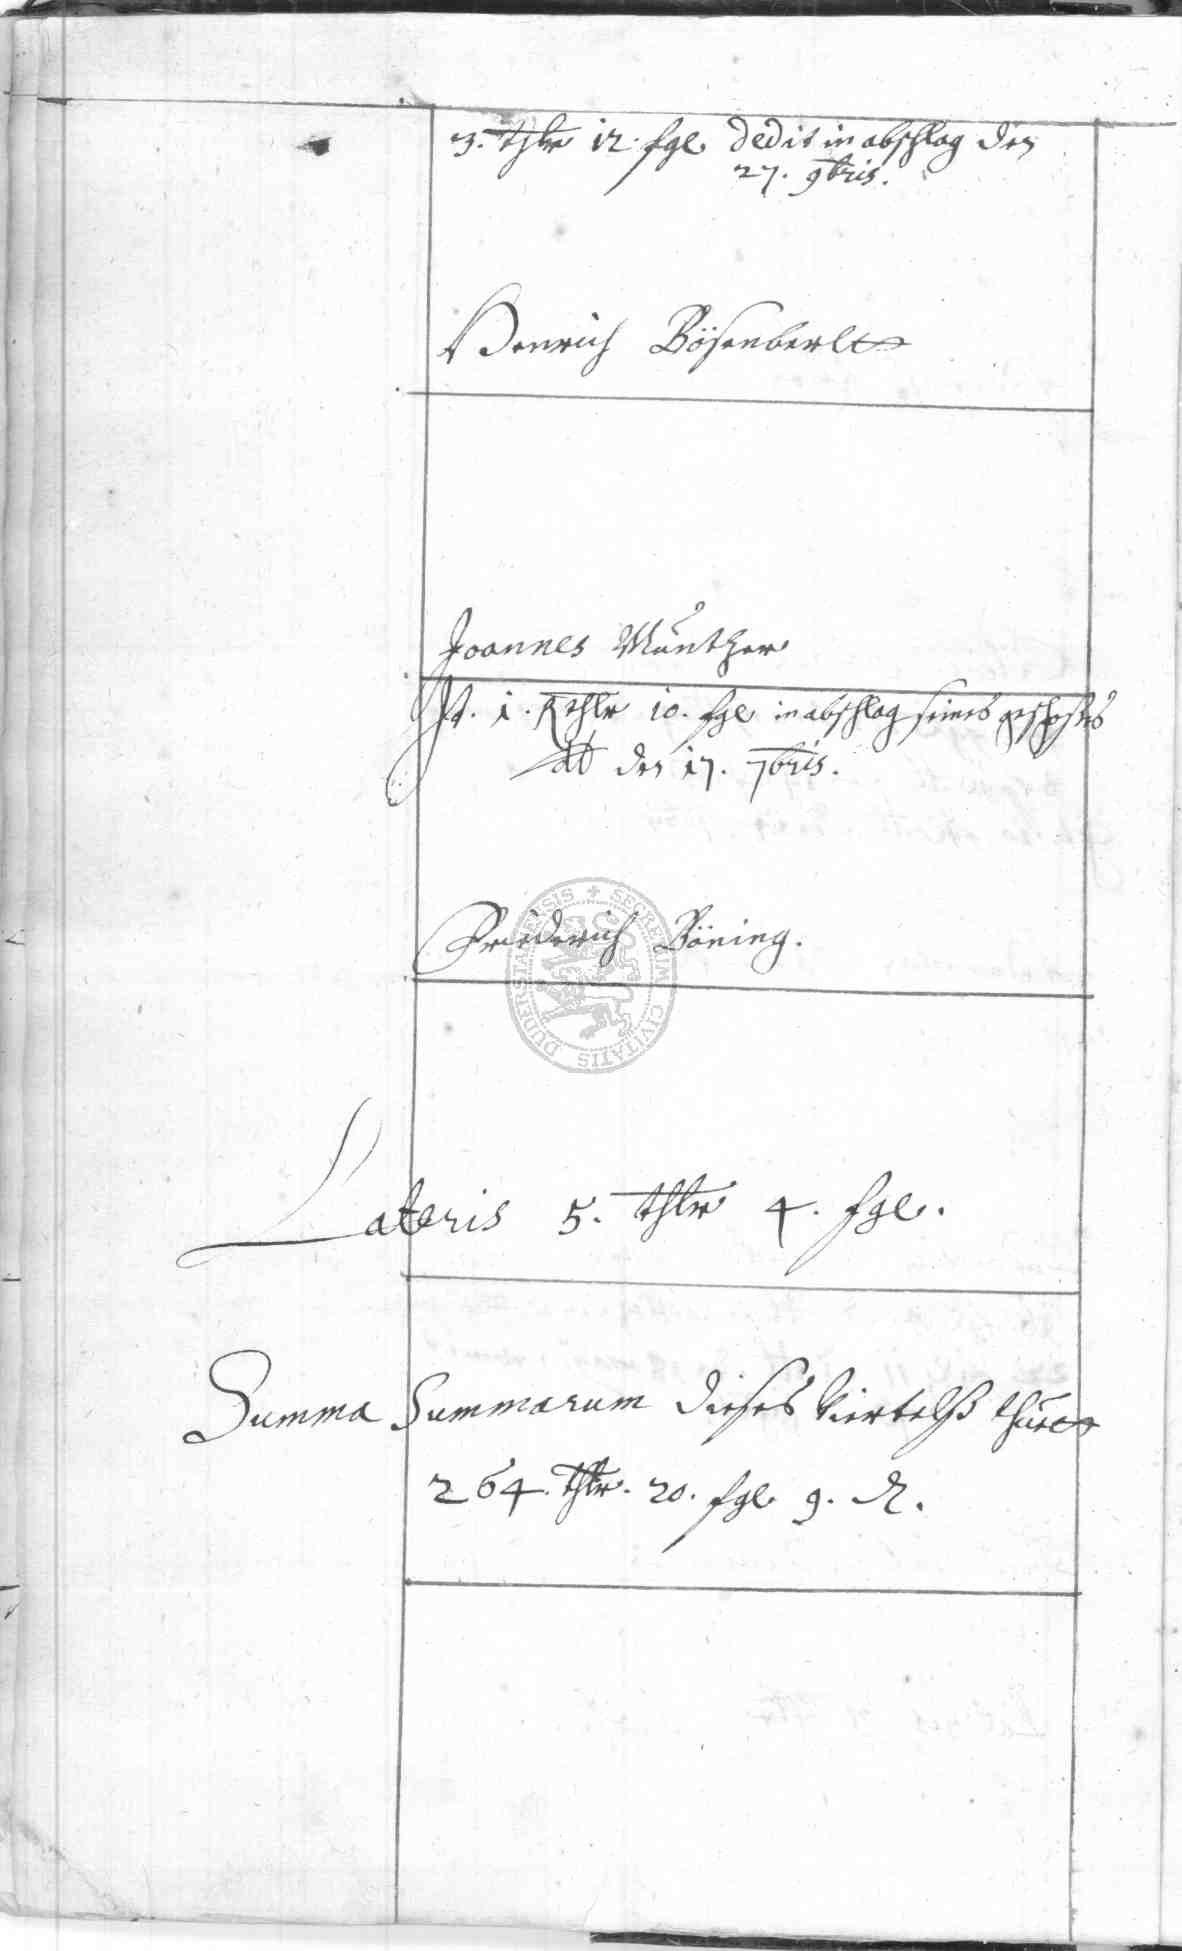 3. thlr 12. sgl. dedit in abschlag den
27. 9bris.
Henrich Bösenberl
Joannes Münther
It. 1. Rthlr 10. sgl in abschlag seines geschoßes
dt den 17. 7bris.
Friederich Böning.
SECRETUM CIVITATIS DUDERSTADENSIS
Lateris 5. thlr 4. sgl.
Summa Summarum dieses Viertelß thuet
264. thlr. 20. sgl 9. d.